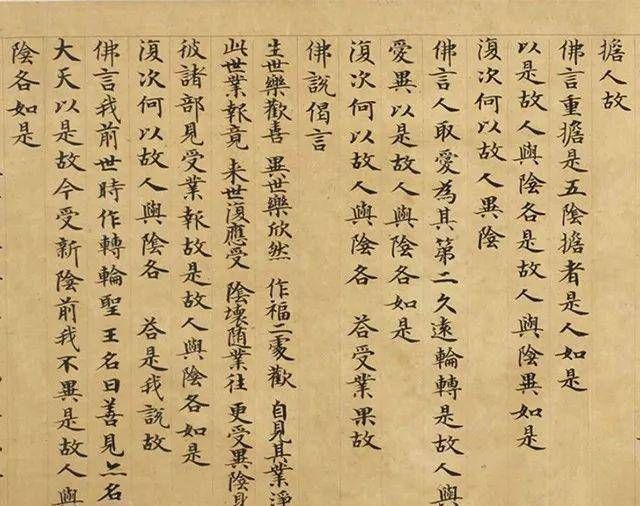 擔人故
佛言重擔是五陰擔者是人如是
以是故人與陰各是故人與陰異如是
復次何以故人異陰
佛言人取愛為其第二久遠輪轉是故人與
愛異以是故人與陰各如是
復次何以故人與陰各 荅受業果故
佛說偈言
生世樂歡喜 異世樂欣然 作福二處歡 自見其業淨
此世業報竟 来世復應受 陰壞随業往 更受異陰身
彼諸部見受業報故是故人與陰各如是
復次何以故人與陰各 荅是我說故
佛言我前世時作轉輪聖王名曰善見亦名
大天以是故今受新陰前我不異是故人與
陰各如是